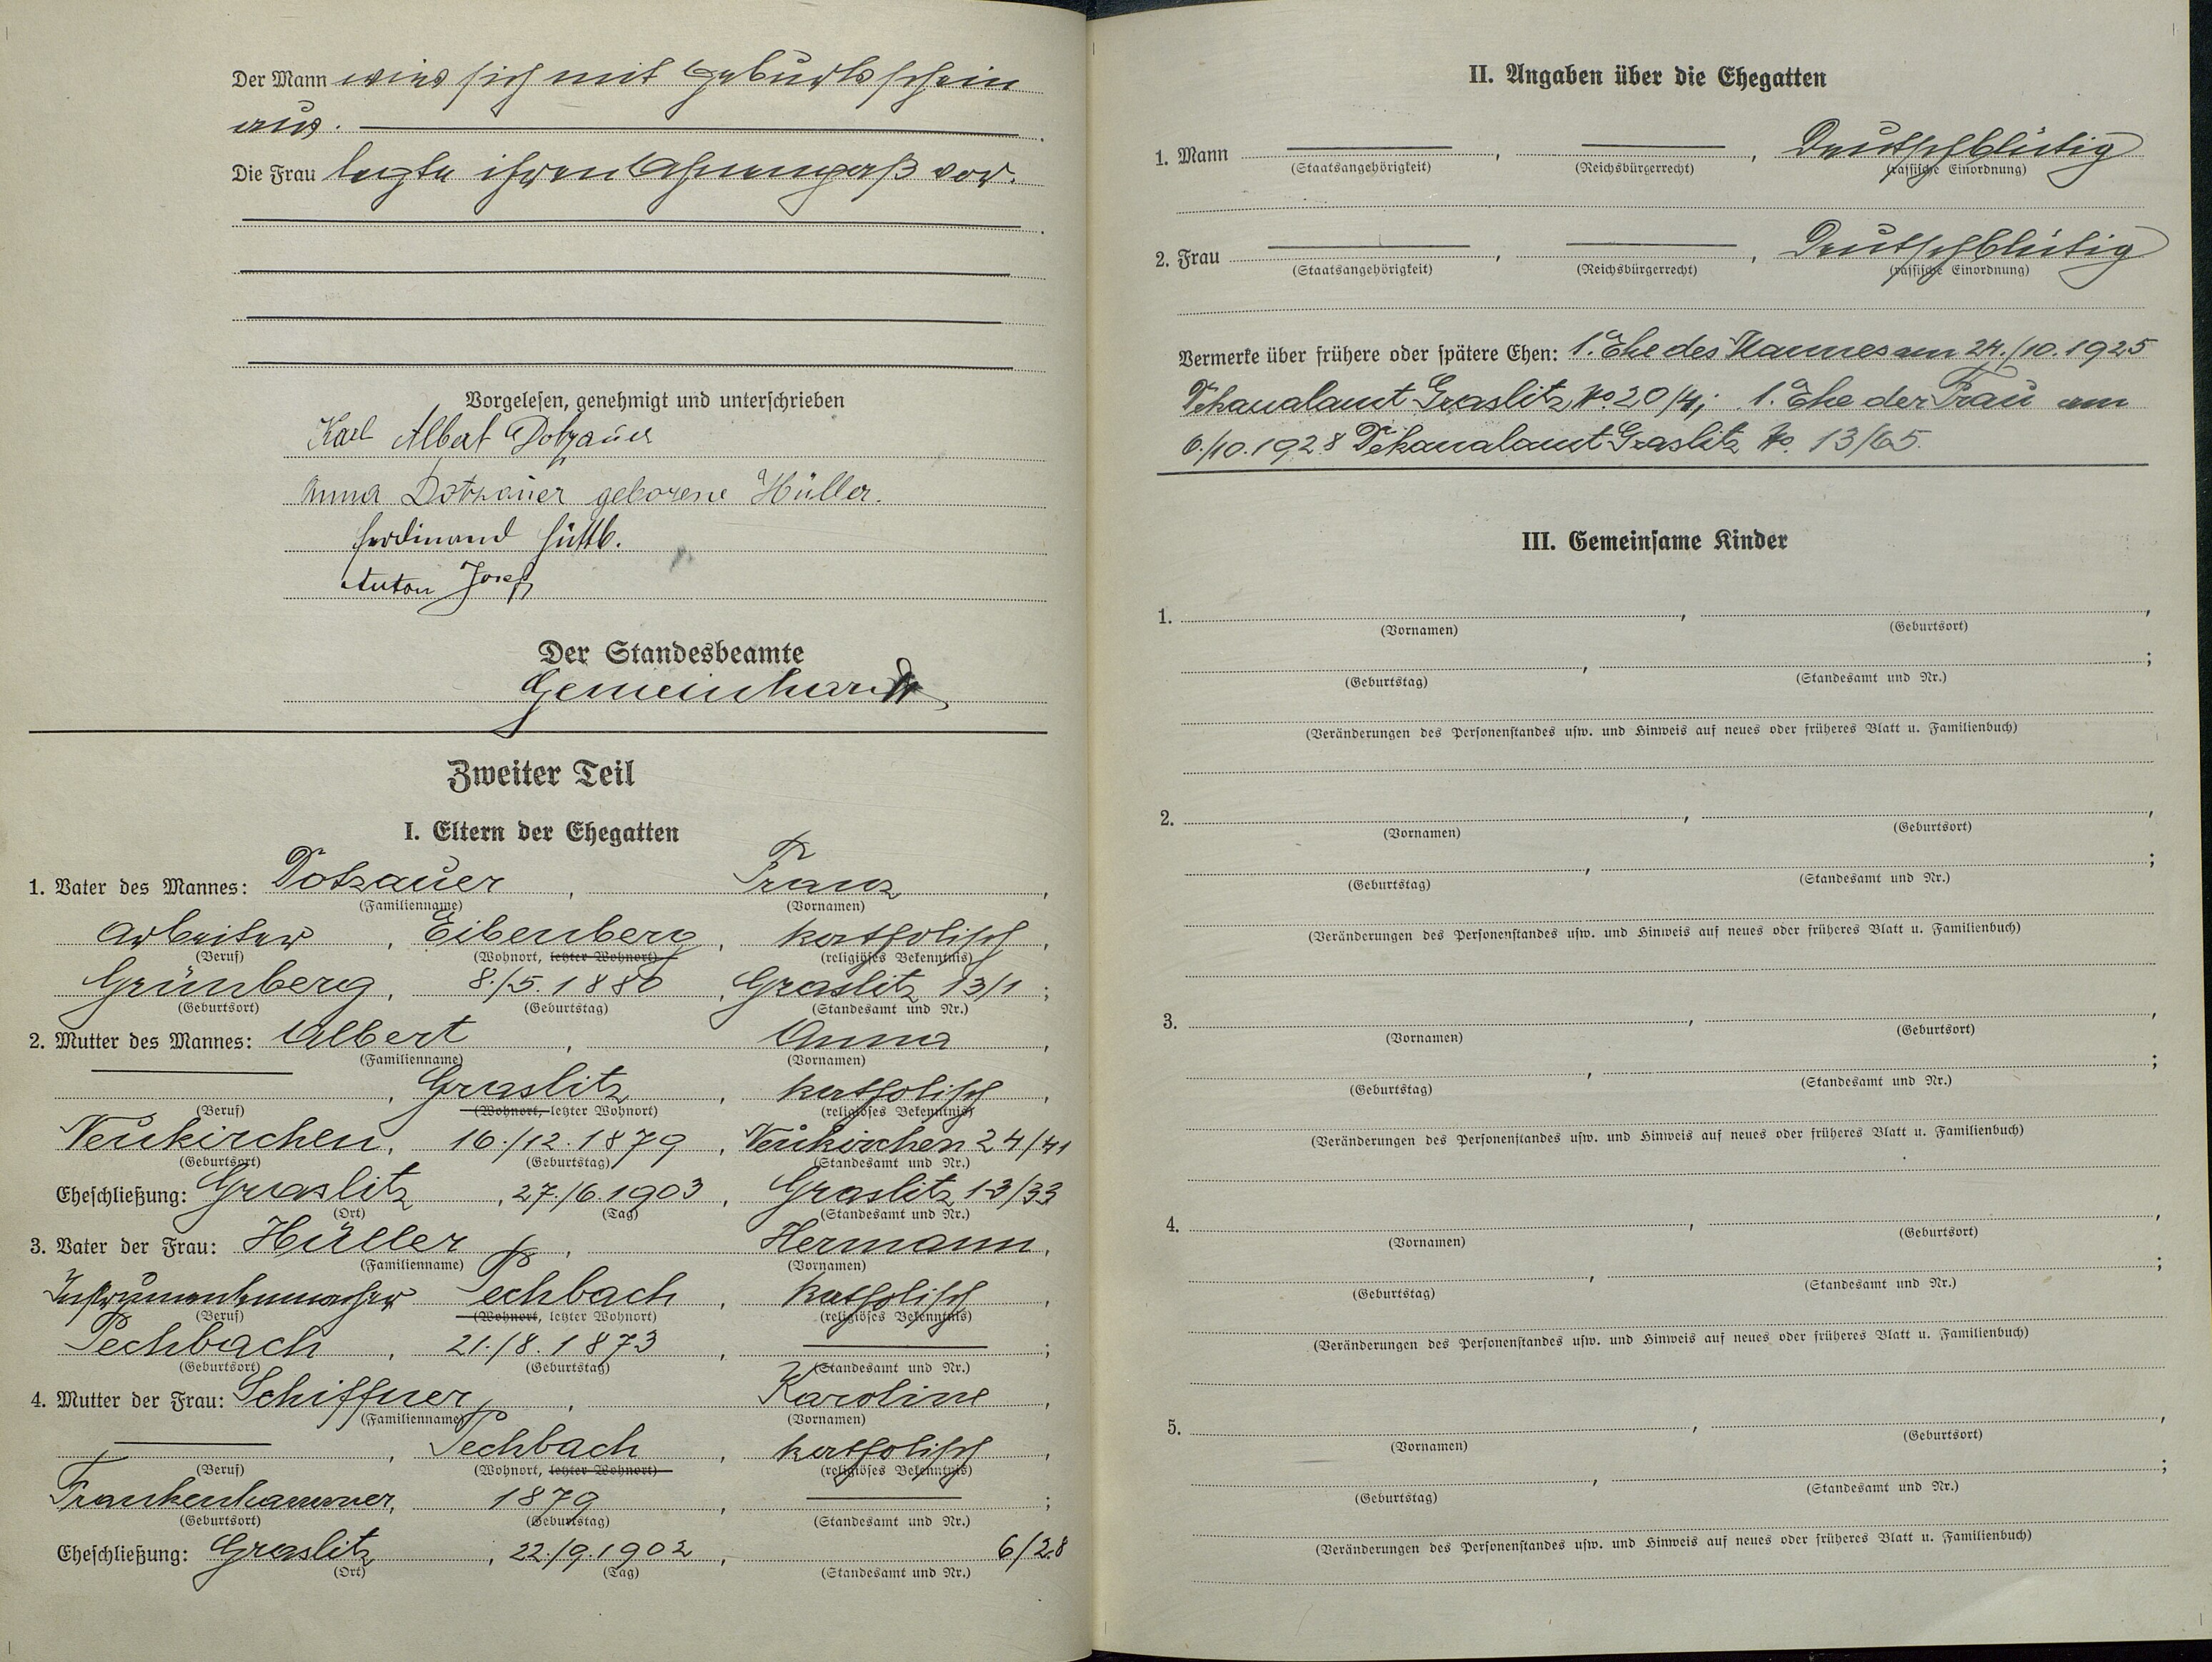 Der Mann wies sich mit Geburtsschein
aus.
Die Frau legte ihren Ahnenpaß vor.
Vorgelesen, genehmigt und unterschrieben
Karl Albert Dotzauer
Anna Dotzauer geborene Hüller.
Ferdinand
Anton Josef
Der Standesbeamte
Gemeinhardt
Zweiter Teil
I. Eltern der Ehegatten
1. Vater des Mannes: Dotzauer, Franz,
(Familienname) (Vornamen)
Arbeiter, Eibenberg, katholisch,
(Beruf) (Wohnort, letzter Wohnort) (religiöses Bekenntnis)
Grünberg, 8./5. 1880, Graslitz 13/1;
(Geburtsort) (Geburtstag) (Standesamt und Nr.)
2. Mutter des Mannes: Albert, Anna,
(Familienname) (Vornamen)
, Graslitz, katholisch,
(Beruf) (Wohnort, letzter Wohnort) (religiöses Bekenntnis)
Neukirchen, 16./12. 1879, Neukirchen 24/41
(Geburtsort) (Geburtstag) (Standesamt und Nr.)
Eheschließung: Graslitz, 27./6. 1903, Graslitz 13/33
(Ort) (Tag) (Standesamt und Nr.)
3. Vater der Frau: Hüller, Hermann,
(Familienname) (Vornamen)
Instrumentenmacher Pechbach, katholisch,
(Beruf) (Wohnort, letzter Wohnort) (religiöses Bekenntnis)
Pechbach, 21./8. 1873, ;
(Geburtsort) (Geburtstag) (Standesamt und Nr.)
4. Mutter der Frau: Schiffner, Karoline,
(Familienname) (Vornamen)
, Pechbach, katholisch,
(Beruf) (Wohnort, letzter Wohnort) (religiöses Bekenntnis)
Frankenhammer, 1879, ;
(Geburtsort) (Geburtstag) (Standesamt und Nr.)
Eheschließung: Graslitz, 22./9. 1902, 6/28
(Ort) (Tag) (Standesamt und Nr.)
II. Angaben über die Ehegatten
1. Mann , , Deutschblütig
(Staatsangehörigkeit) (Reichsbürgerrecht) (rassische Einordnung)
2. Frau , , Deutschblütig
(Staatsangehörigkeit) (Reichsbürgerrecht) (rassische Einordnung)
Vermerke über frühere oder spätere Ehen: 1. Ehe des Mannes am 24./10. 1925
Dekanalamt Graslitz No. 20/4; 1. Ehe der Frau am
6./10. 1928 Dekanalamt Graslitz No. 13/65.
III. Gemeinsame Kinder
1. , ,
(Vornamen) (Geburtsort)
, ;
(Geburtstag) (Standesamt und Nr.)
(Veränderungen des Personenstandes usw. und Hinweis auf neues oder früheres Blatt u. Familienbuch)
2. , ,
(Vornamen) (Geburtsort)
, ;
(Geburtstag) (Standesamt und Nr.)
(Veränderungen des Personenstandes usw. und Hinweis auf neues oder früheres Blatt u. Familienbuch)
3. , ,
(Vornamen) (Geburtsort)
, ;
(Geburtstag) (Standesamt und Nr.)
(Veränderungen des Personenstandes usw. und Hinweis auf neues oder früheres Blatt u. Familienbuch)
4. , ,
(Vornamen) (Geburtsort)
, ;
(Geburtstag) (Standesamt und Nr.)
(Veränderungen des Personenstandes usw. und Hinweis auf neues oder früheres Blatt u. Familienbuch)
5. , ,
(Vornamen) (Geburtsort)
, ;
(Geburtstag) (Standesamt und Nr.)
(Veränderungen des Personenstandes usw. und Hinweis auf neues oder früheres Blatt u. Familienbuch)